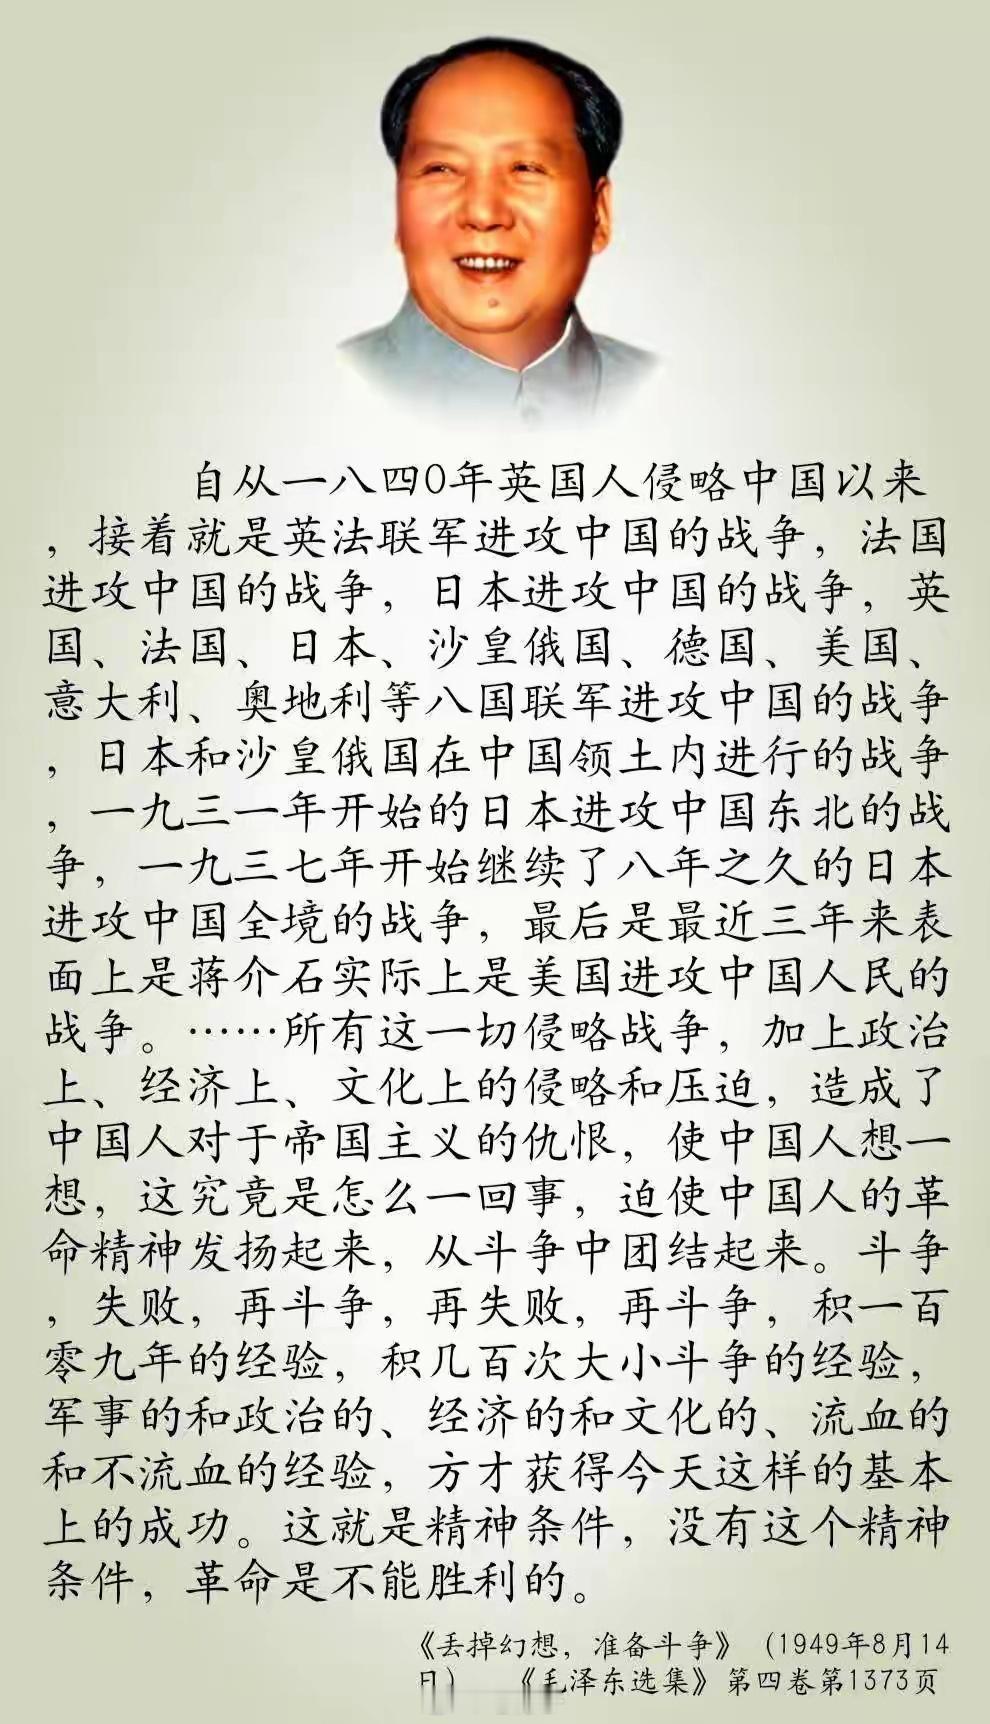 自从一八四0年英国人侵略中国以来
，接着就是英法联军进攻中国的战争，法国
进攻中国的战争，日本进攻中国的战争，英
国、法国、日本、沙皇俄国、德国、美国、
意大利、奥地利等八国联军进攻中国的战争
，日本和沙皇俄国在中国领土内进行的战争
，一九三一年开始的日本进攻中国东北的战
争，一九三七年开始继续了八年之久的日本
进攻中国全境的战争，最后是最近三年来表
面上是蒋介石实际上是美国进攻中国人民的
战争。……所有这一切侵略战争，加上政治
上、经济上、文化上的侵略和压迫，造成了
中国人对于帝国主义的仇恨，使中国人想一
想，这究竟是怎么一回事，迫使中国人的革
命精神发扬起来，从斗争中团结起来。斗争
，失败，再斗争，再失败，再斗争，积一百
零九年的经验，积几百次大小斗争的经验，
军事的和政治的、经济的和文化的、流血的
和不流血的经验，方才获得今天这样的基本
上的成功。这就是精神条件，没有这个精神
条件，革命是不能胜利的。
《丢掉幻想，准备斗争》（1949年8月14
日） 《毛泽东选集》第四卷第1373页